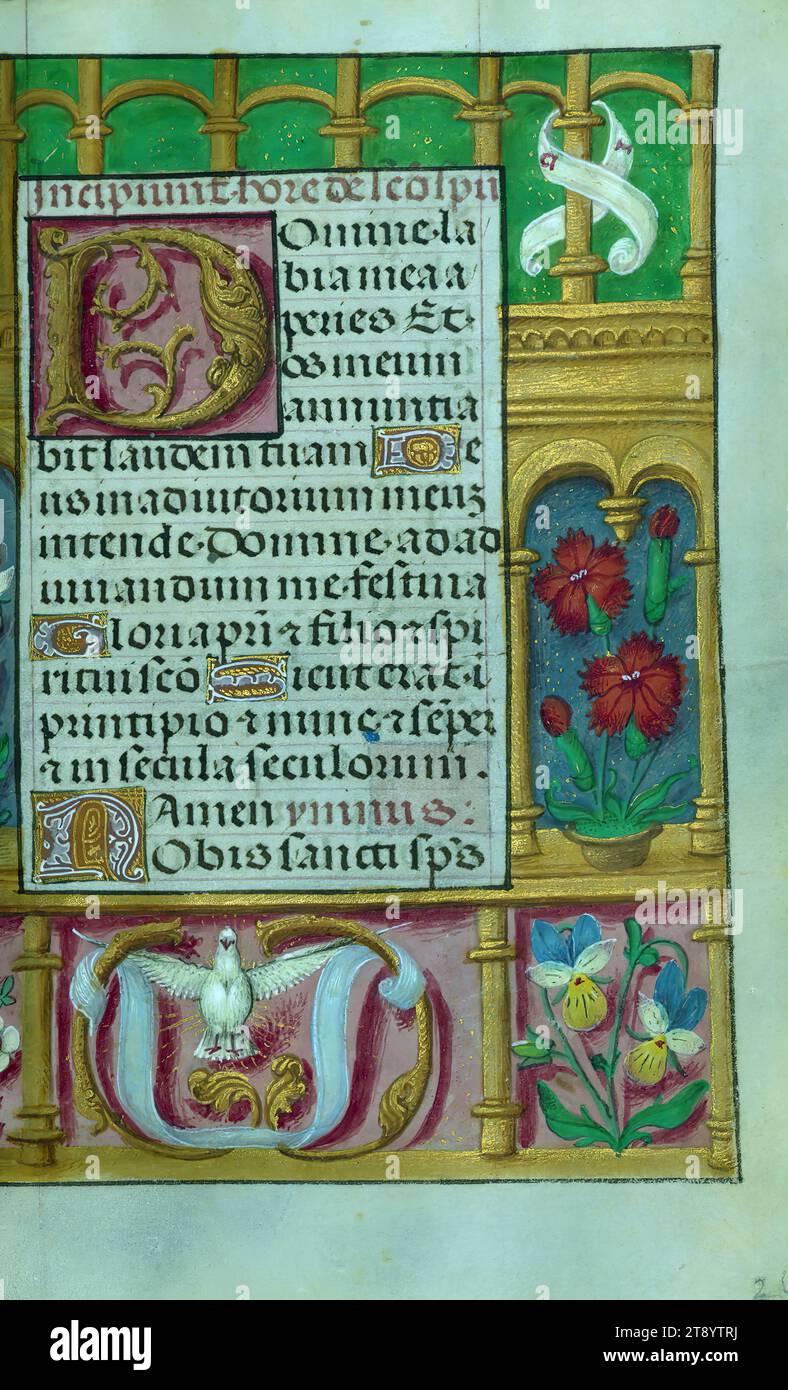 Incipiunt hore de sco spu
Domine la
bia mea a
peries Et
os meum
annuntia
bit laudem tuam De
us in adiutorium meuz
intende Domine ad ad
iuuandum me festina
Gloria pri & filio & spi
ritui sco Sicut erat i
principio & nunc & semper
& in secula seculorum.
Amen ymnus:
Nobis sancti sps
alamy
alamy
a
Image ID: 2T8YTRJ
www.alamy.com